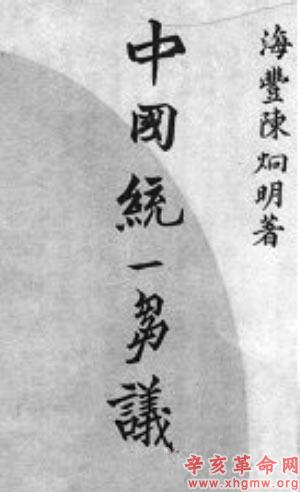 海豐陳炯明著
中國統一芻議
辛亥革命网
www.xhgmw.org